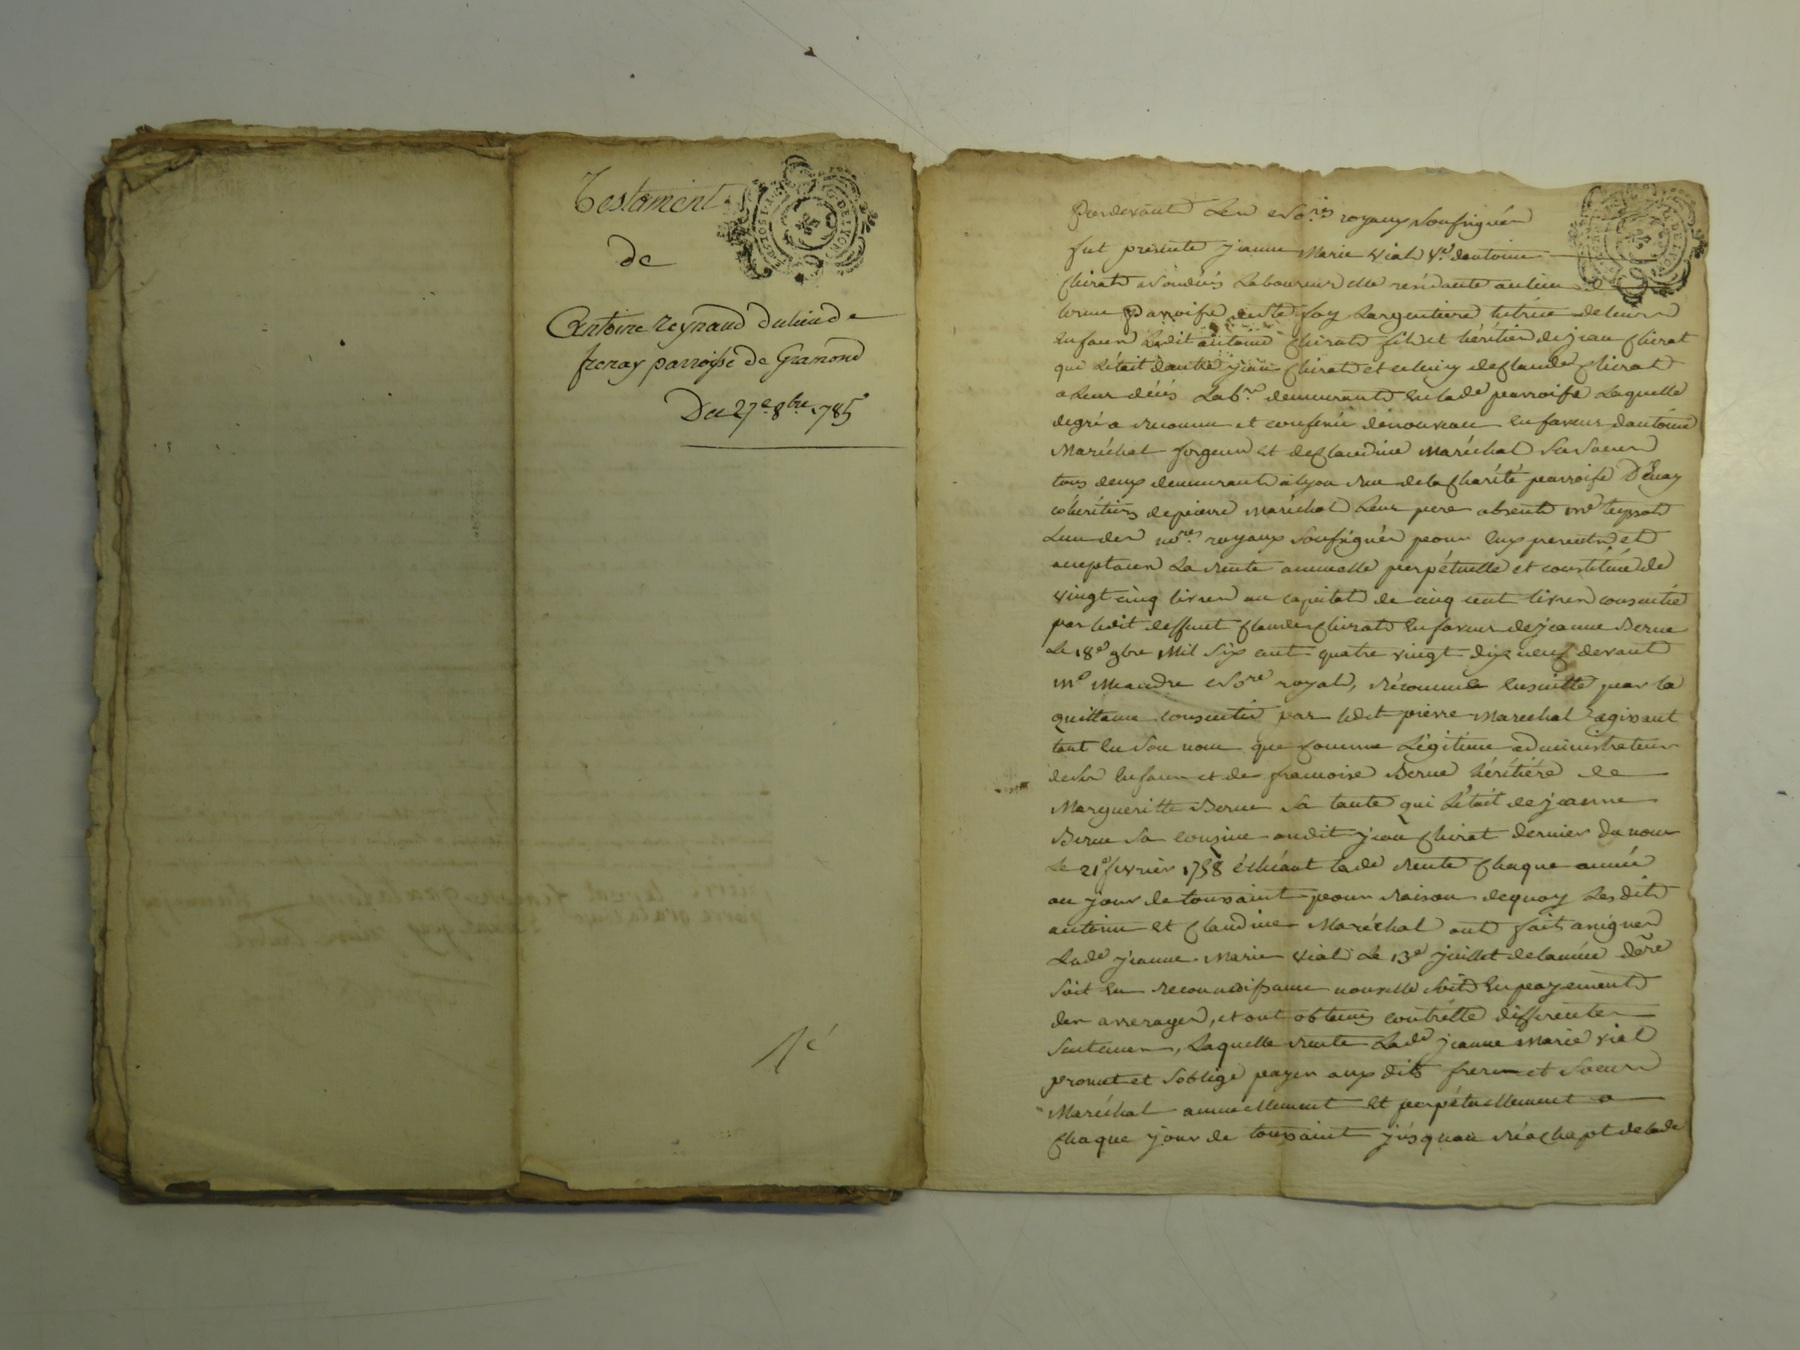 Testament
de
Antoine Reynaud du lieu de
frenay parroisse de Gramond
Du 27e 8bre 1785
Pardevant Les No.res royaux soussignés
fut presente jeanne Marie Vial Ve dantoine
Chirat vivant Laboureur elle résidante au lieu de
parroisse de Ste foy Largentiere tutrice de leurs
Enfans Ledit antoine Chirat fils et héritier de jean Chirat
qui L'était dautre jean Chirat et celuy de Claude Chirat
a Leur décès Lab.rs demeurants en lad.e parroisse Laquelle
de gré a reconnu et confessé de nouveau En faveur dantoine
Maréchal forgeur et de Claudine Maréchal sa soeur
tous deux demeurants à Lyon rue de la Charité parroisse D'Enay
cohéritiers de pierre Maréchal Leur pere absents me
L'un des no.res royaux soussignés pour Eux present et
acceptant La rente annuelle perpétuelle et constituée de
vingt cinq livres au capital de cinq cent livres consentie
par ledit deffunt Claude Chirat En faveur de jeanne Berne
Le 18e 9bre Mil six cent quatre vingt dix neuf devant
Me Meandre No.re royal, réconnue Ensuitte par la
quittance consentie par ledit pierre Marechal agissant
tant En son nom que comme Légitime administrateur
de ses Enfans et de francoise Berne héritière de
Margueritte Berne sa tante qui L'était de jeanne
Berne sa cousine audit jean Chirat dernier du nom
Le 21e fevrier 1758 échéant lade rente Chaque année
au jour de toussaint pour raison de quoy Lesdits
antoine et Claudine Maréchal ont fait assigner
Lade jeanne Marie Vial Le 13e juillet de lannée dere
soit En reconnoissance nouvelle soit En payement
des arrerages, et ont obtenus contr'elle differentes
sentences, Laquelle rente Lade jeanne Marie vial
promet et s'oblige payer aux dits frere et soeur
Maréchal annuellement et perpétuellement a
Chaque jour de toussaint jusquau réachapt de lade